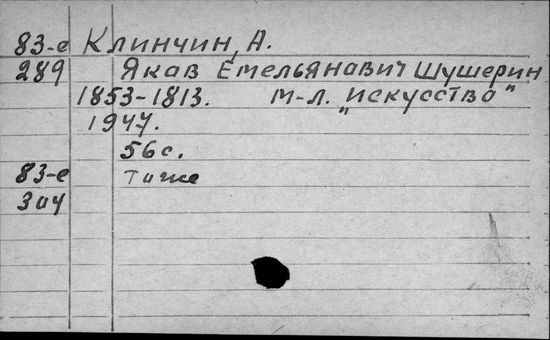 83-е Клинчин, А.
289 Яков Емельянович Шушерин
1853-1813. М-Л. "Искусство"
1947.
56с.
83-е Тоже
304